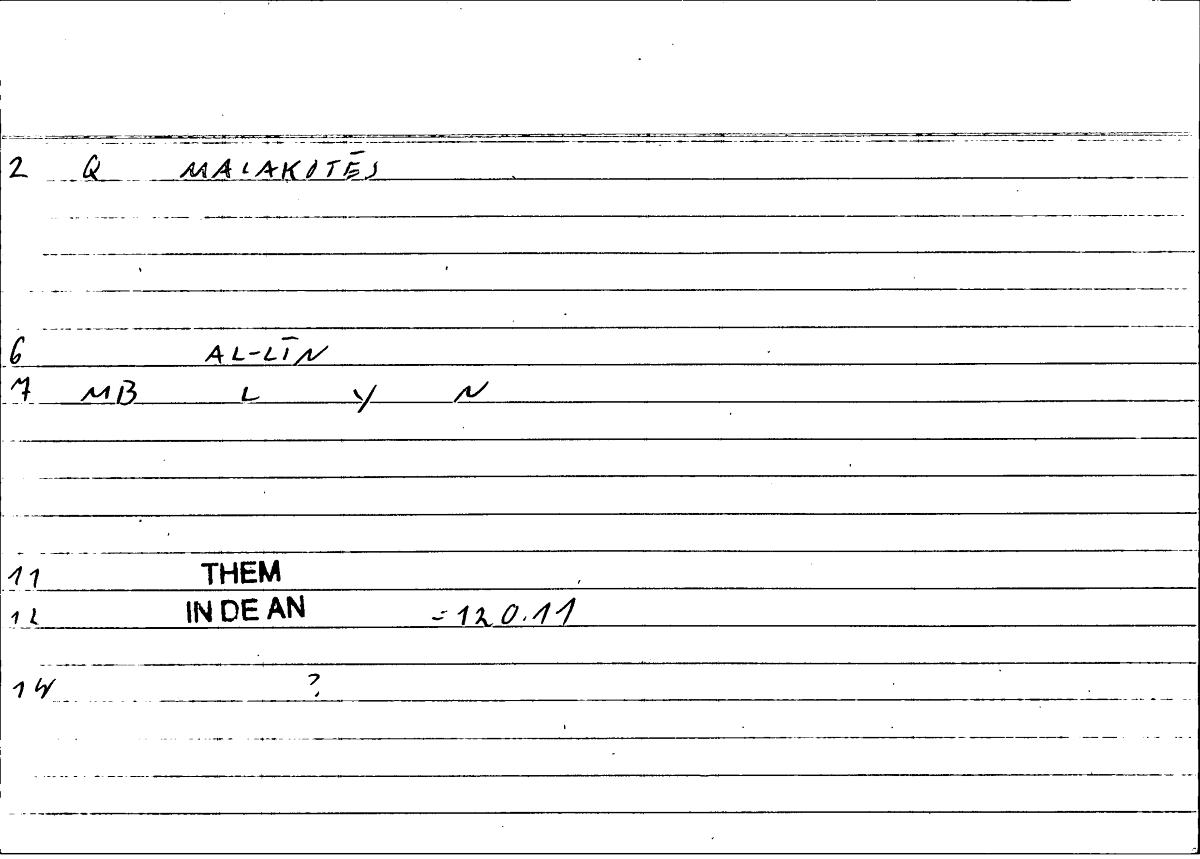 2 Q MALAKOTĒS
6 AL-LĪN
7 MB L Y N
11 THEM
12 IN DE AN =120.11
14 ?